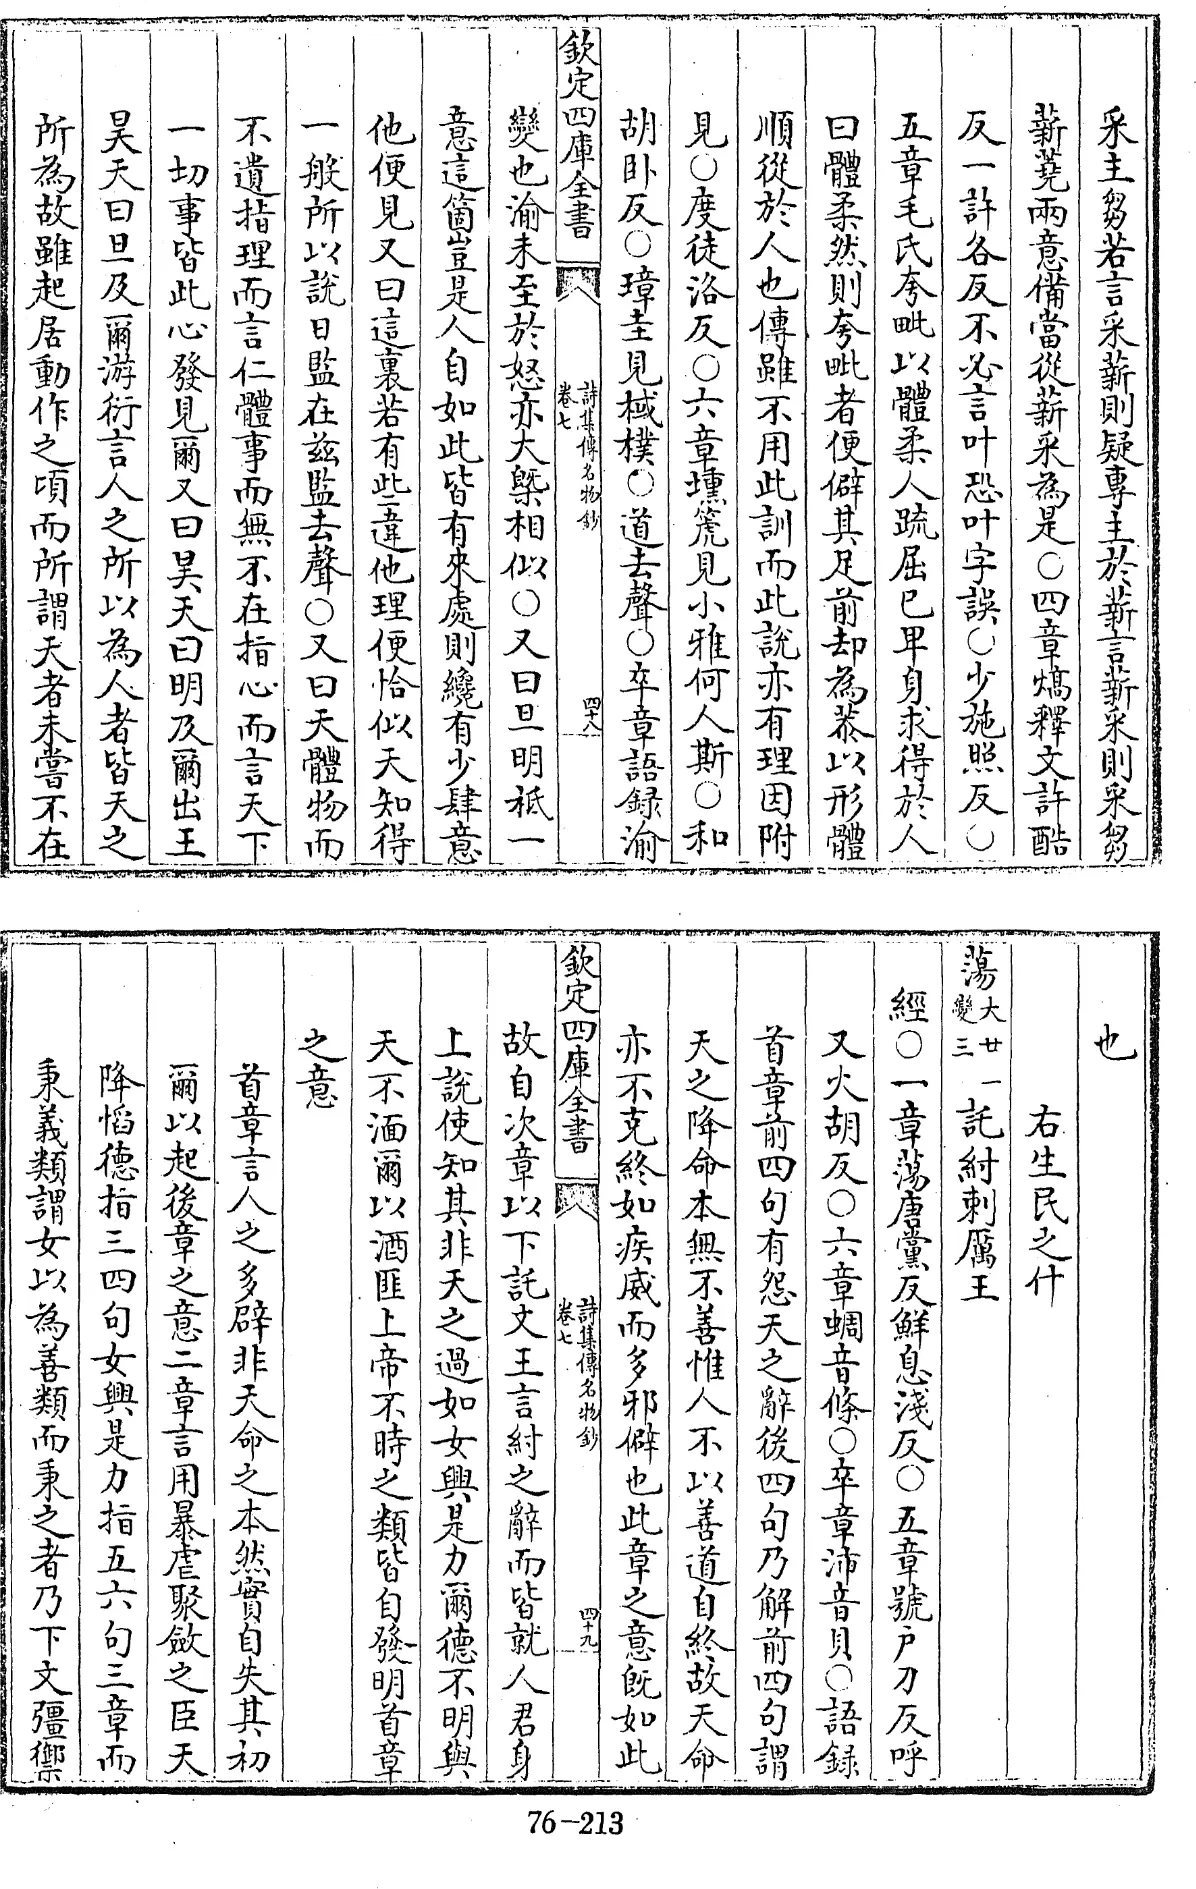 采主芻若言采薪則疑專主於薪言薪采則采芻
薪蕘兩意備當從薪采為是○四章熇釋文許酷
反一許各反不必言叶恐叶字誤○少施照反○
五章毛氏夸毗以體柔人疏屈已卑身求得於人
曰體柔然則夸毗者便僻其足前却為恭以形體
順從於人也傳雖不用此訓而此說亦有理因附
見○度徒洛反○六章壎篪見小雅何人斯○和
胡卧反○璋圭見棫樸○道去聲○卒章語録渝
欽定四庫全書
詩集傳名物鈔
卷七
四十八
變也渝未至於怒亦大槩相似○又曰旦明祗一
意這箇豈是人自如此皆有來處則纔有少肆意
他便見又曰這裏若有些違他理便恰似天知得
一般所以說日監在兹監去聲○又曰天體物而
不遺指理而言仁體事而無不在指心而言天下
一切事皆此心發見爾又曰昊天曰明及爾出王
昊天曰旦及爾游衍言人之所以為人者皆天之
所為故雖起居動作之頃而所謂天者未嘗不在
也
右生民之什
蕩大廿
變三
一託紂刺厲王
經○一章蕩唐黨反鮮息淺反○五章號户刀反呼
又火胡反○六章蜩音條○卒章沛音貝○語録
首章前四句有怨天之辭後四句乃解前四句謂
天之降命本無不善惟人不以善道自終故天命
亦不克終如疾威而多邪僻也此章之意旣如此
欽定四庫全書
詩集傳名物鈔
卷七
四十九
故自次章以下託文王言紂之辭而皆就人君身
上說使知其非天之過如女興是力爾德不明與
天不湎爾以酒匪上帝不時之類皆自發明首章
之意
首章言人之多辟非天命之本然實自失其初
爾以起後章之意二章言用暴虐聚斂之臣天
降慆德指三四句女興是力指五六句三章而
秉義類謂女以為善類而秉之者乃下文彊禦
76-213